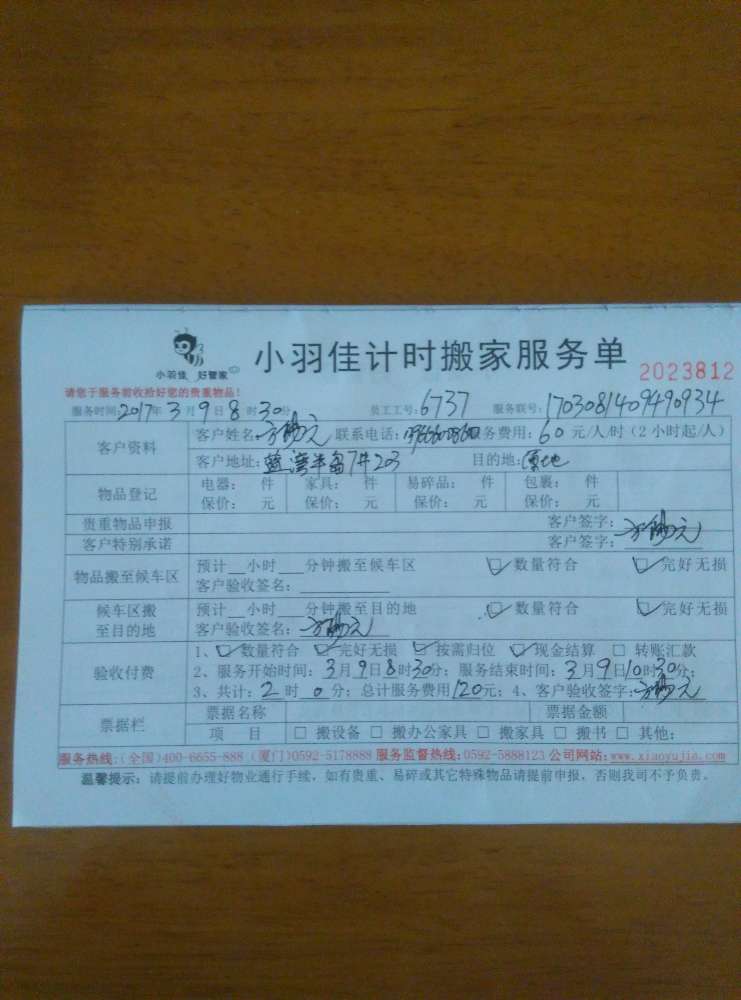 小羽佳 好管家
小羽佳计时搬家服务单
2023812
请您于服务前收捡好您的贵重物品!
服务时间:2017年3月9日8时30分 员工工号:6737 服务联号:1703081409490934
客户资料
客户姓名: 联系电话: 服务费用:60元/人/时(2小时起/人)
客户地址:蓝湾半岛7#203 目的地:原地
物品登记
电器: 件 家具: 件 易碎品: 件 包裹: 件
保价: 元 保价: 元 保价: 元 保价: 元
贵重物品申报 客户签字:
客户特别承诺 客户签字:
物品搬至候车区
预计__小时___分钟搬至候车区 数量符合 完好无损
客户验收签名:
候车区搬至目的地
预计__小时___分钟搬至目的地 数量符合 完好无损
客户验收签名:
验收付费
1、数量符合 完好无损 按需归位 现金结算 转账汇款
2、服务开始时间:3月9日8时30分;服务结束时间:3月9日10时30分;
3、共计:2时0分;总计服务费用120元;4、客户验收签字:
票据栏
票据名称 票据金额
项 目 搬设备 搬办公家具 搬家具 搬书 其他:
服务热线:(全国)400-6655-888 (厦门)0592-5178888 服务监督热线:0592-5888123 公司网站:www.xiaoyujia.com
温馨提示:请提前办理好物业通行手续,如有贵重、易碎或其它特殊物品请提前申报,否则我司不予负责。